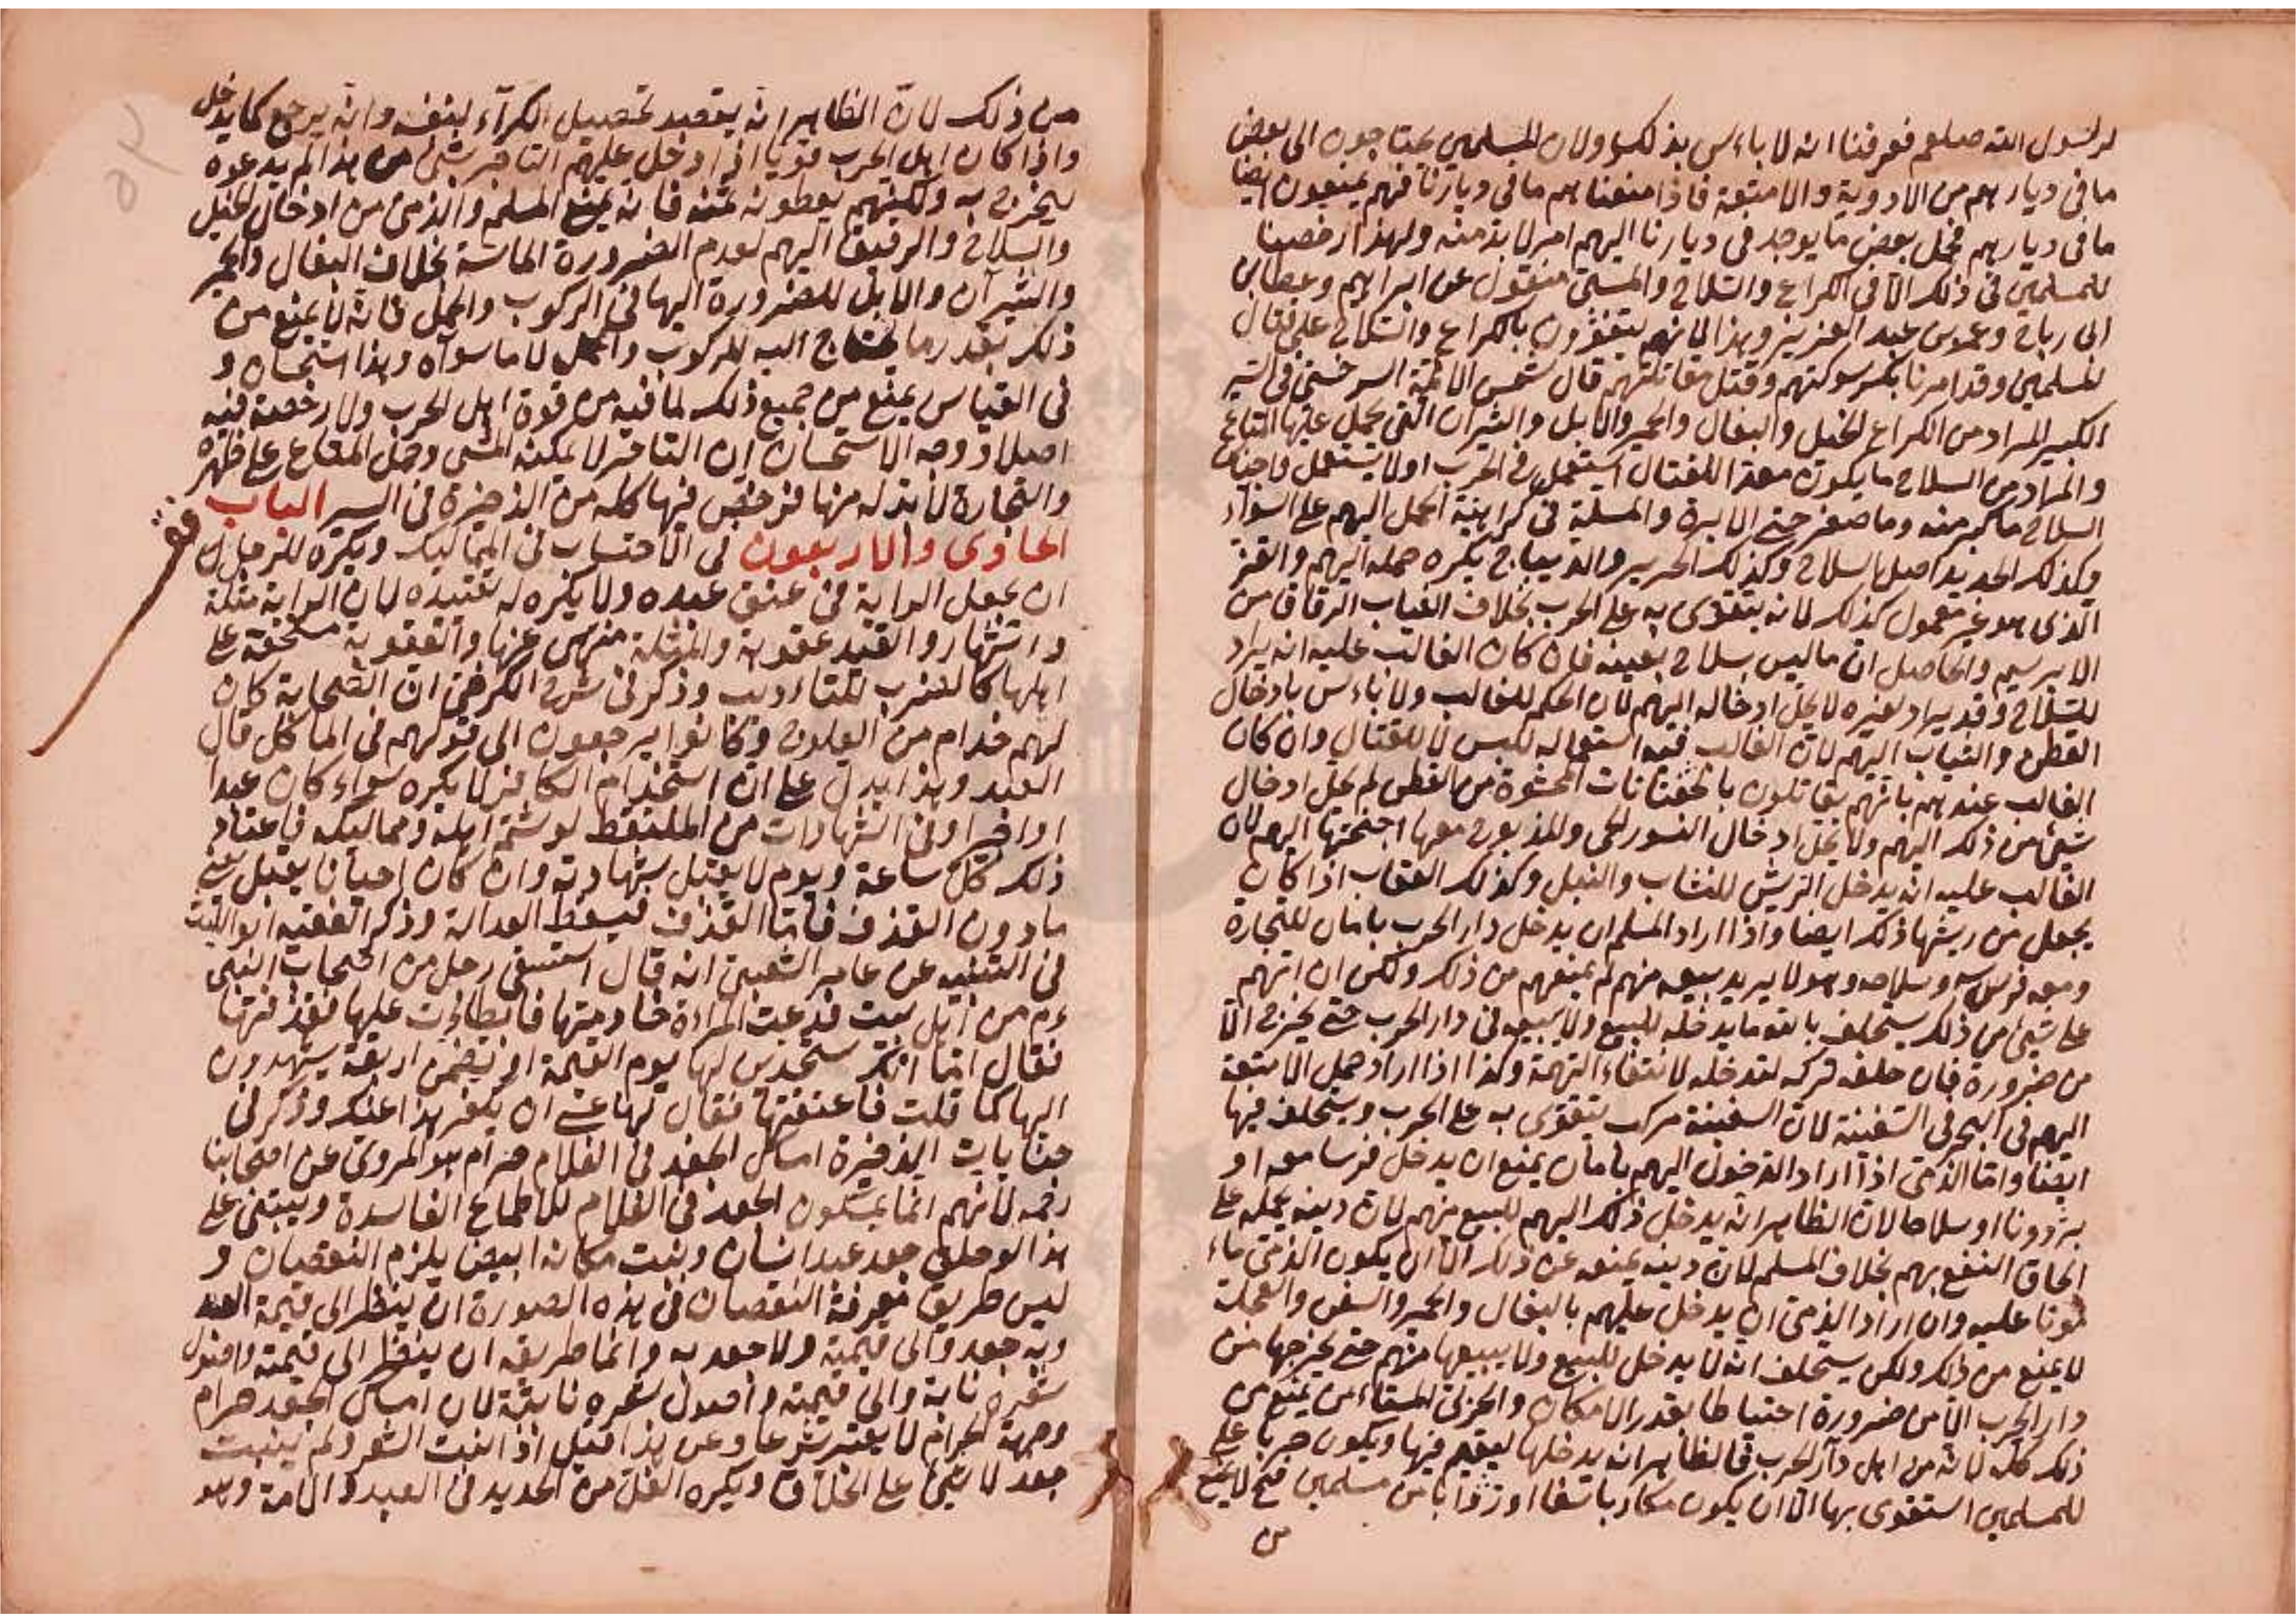 لرسول الله صلعم فعرفنا انه لا باءس بذلك ولان المسلمين يحتاجون الى بعض
ما فى ديارهم من الادوية والامتعة فاذا منعناهم ما فى ديارنا فهم يمنعون ايضا
ما فى ديارهم فحمل بعض ما يوجد فى ديارنا اليهم امر لا بد منه ولهذا رخصنا
للمسلمين فى ذلك الا فى الكراع والسلاح والسبى منقول عن ابراهيم وعطا بن
ابى رباح وعمر بن عبد العزيز وهذا لانهم يتقوون بالكراع والسلاح على قتال
المسلمين وقد امرنا بكسر شوكتهم وقتل مقاتلتهم قال شمس الائمة السرخسى فى السير
الكبير المراد من الكراع الخيل والبغال والحمير والابل والثيران التى يحمل عليها المتاع
والمراد من السلاح ما يكون معدا للقتال استعمل فى الحرب اولا يستعمل واجناس
السلاح ما كبر منه وما صغر حتى الابرة والمسلة فى كراهية الحمل اليهم على السواء
وكذلك الحديد اصل السلاح وكذلك الحرير والديباج يكره حمله اليهم والقز
الذى هو غير معمول كذلك لانه يتقوى به على الحرب بخلاف الثياب الرقاق من
الابريسم والحاصل ان ما ليس بسلاح بعينه فان كان الغالب عليه انه يراد
للسلاح وقد يراد لغيره لا يحل ادخاله اليهم لان الحكم للغالب ولا باءس بادخال
القطن والثياب اليهم لان الغالب فيه استعماله للبس لا للقتال وان كان
الغالب عندهم بانهم يقاتلون بالخفتانات المحشوة من القطن لم يحل ادخال
شئ من ذلك اليهم ولا يحل ادخال النسور الحى والمذبوح معها اجنحتها اليهم لان
الغالب عليه انه يدخل الريش للنشاب والنبل وكذلك العقاب اذا كان
يجعل من ريشها ذلك ايضا واذا اراد المسلم ان يدخل دار الحرب بامان للتجارة
ومعه فرسه وسلاحه وهو لا يريد بيعه منهم لم يمنعهم من ذلك ولكن ان اتهم
على شئ من ذلك يستحلف بالله ما يدخله للبيع ولا يبيعه فى دار الحرب حتى يخرج الا
من ضرورة فان حلف تركه لتدخله لانتفاء التهمة وكذا اذا اراد حمل الامتعة
اليهم فى البحر فى السفينة لان السفينة مركب يتقوى به على الحرب ويستحلف فيها
ايضا واما الذمى اذا اراد الدخول اليهم بامان يمنع ان يدخل فرسا معه او
برذونا او سلاحا لان الظاهر انه يدخل ذلك اليهم للبيع منهم لان دينه يحمله على
الحاق النفع بهم بخلاف المسلم لان دينه يمنعه عن ذلك الا ان يكون الذمى ماء
مونا عليه وان اراد الذمى ان يدخل عليهم بالبغال والحمير والسفن والعجلة
لا يمنع من ذلك ولكن يستحلف انه لا يدخل للبيع ولا يبيعها منهم حتى يخرجها من
دار الحرب الا من ضرورة احتياطا بقدر الامكان والحربى المستاءمن يمنع من
ذلك كله لانه من اهل دار الحرب فالظاهر انه يدخلها ليقيم فيها ويكون حربا على
للمسلمين استقوى بها الا ان يكون مكاريا سفنا او دوابا من مسلمين فح لا يمنع
من
من ذلك لان الظاهر انه يقصد تحصيل الكراء لنفسه وانه يرجع كما يدخل
واذا كان اهل الحرب قويا اذا دخل عليهم التاجر بشئ من هذا لم يدعوه
ليخرج به ولكنهم يعطونه ثمنه فانه يمنع المسلم والذمى من ادخال الخيل
والسلاح والرقيق اليهم لعدم الضرورة الماسة بخلاف البغال والحمير
والثيران والابل للضرورة اليها فى الركوب والحمل فانه لا يمنع من
ذلك بقدر ما يحتاج اليه للركوب والحمل لا ما سواه وهذا استحسان و
فى القياس يمنع من جميع ذلك لما فيه من قوة اهل الحرب ولا رخصة فيه
اصلا ووجه الاستحسان ان التاجر لا يمكنه المشى وحمل المتاع على ظهره
والتجارة لا بد له منها فرخص فيها كله من الذخيرة فى السير الباب
الحادى والاربعون فى الاحتساب فى المماليك ويكره للرجل
ان يجعل الراية فى عنق عبده ولا يكره له تقييده لان الراية مثلة
واشتهار والقيد عقوبة والمثلة منهى عنها والعقوبة مستحقة على
اهلها كالضرب للتاءديب وذكر فى شرح الكرخى ان الصحابة كان
لهم خدام من العلوج وكانوا يرجعون الى قولهم فى الماكل قال
العبد وهذا يدل على ان استخدام الكافر لا يكره سواء كان عبدا
او اجيرا وفى الشهادات من الملتقط لو شتم اهله ومماليكه فاعتاد
ذلك كل ساعة ويوم لا يقبل شهادته وان كان احيانا يقبل يعنى
ما دون القذف فاما القذف فيسقط العدالة وذكر الفقيه ابو الليث
فى التنبيه عن عامر الشعبى انه قال استسقى رجل من اصحاب النبى
ءم من اهل بيت فدعت المراءة خادمتها فابطاءت عليها فقذفتها
فقال اما انك ستحدين لها يوم القيمة او تقيمن اربعة يشهدون
انها كما قلت فاعتقتها فقال لها عسى ان يكفر هذا عنك وذكر فى
جنايات الذخيرة امساك الجعد فى الغلام حرام هو المروى عن اصحابنا
رحمه لانهم انما يمسكون الجعد فى الغلام للاطماع الفاسدة ويبتنى على
هذا لو حلق جعد عبد انسان ونبت مكانه ابيض يلزم النقصان و
ليس طريق معرفة النقصان فى هذه الصورة ان ينظر الى قيمة العبد
وبه جعد والى قيمته ولا جعد به وانما طريقه ان ينظر الى قيمته واصول
شعره نابة والى قيمته واصول شعره نابتة لان امساك الجعد حرام
وجهة الحرام لا يعتبر شرعا وعن هذا قيل اذا نبت الشعر ولم ينبت
جعد لا شئ على الحلاق ويكره الغل من الحديد فى العبد والامة وهو